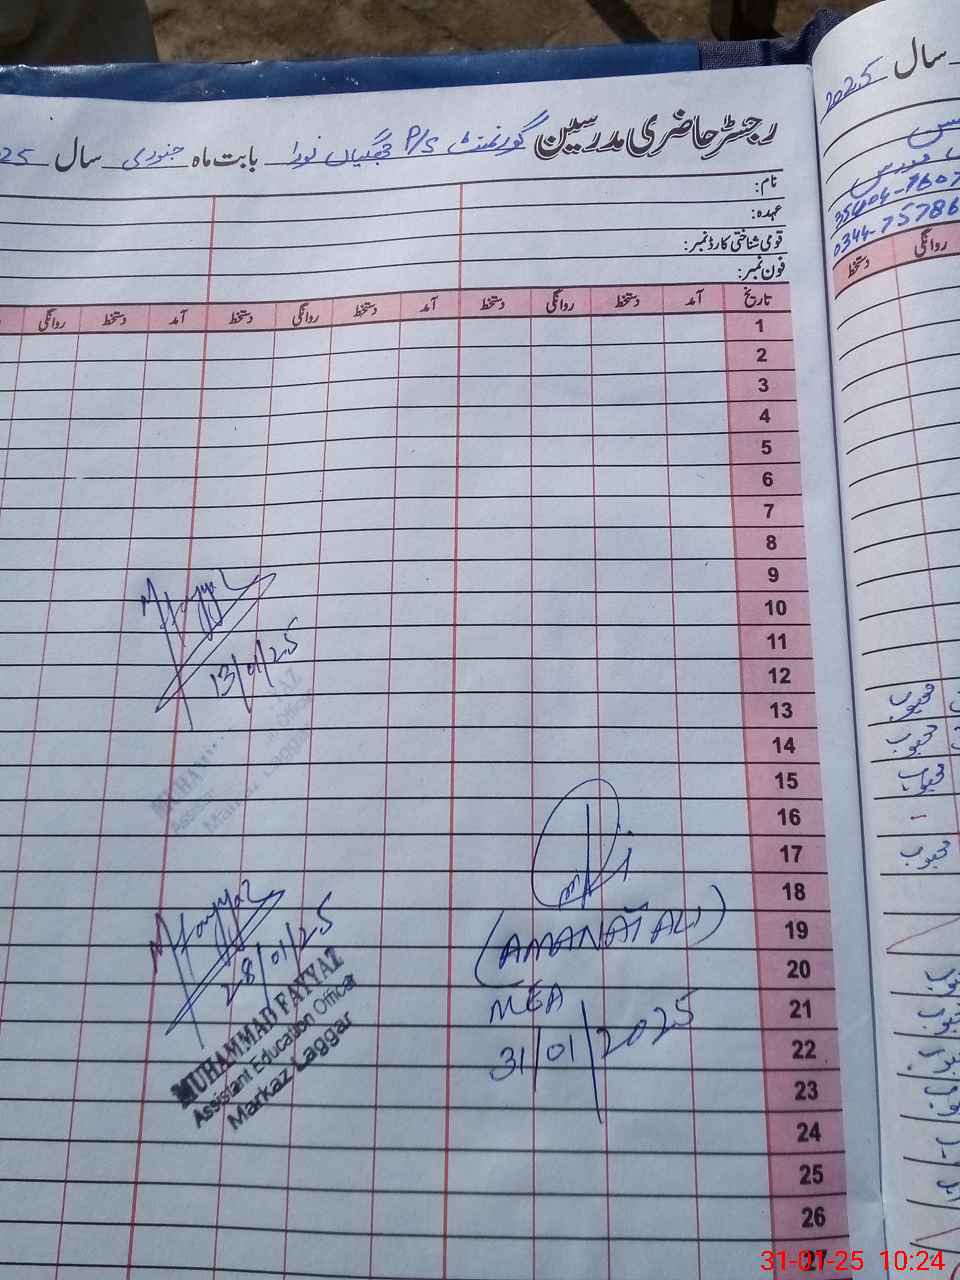 رجسٹر حاضری مدرسین گورنمنٹ P/S جھگیاں نورا بابت ماہ جنوری سال 25
نام:
عہدہ:
قومی شناختی کارڈ نمبر:
فون نمبر:
تاریخ آمد دستخط روانگی دستخط آمد دستخط روانگی دستخط آمد دستخط روانگی
1
2
3
4
5
6
7
8
9
10
11
12
13
14
15
16
17
18
19
20
21
22
23
24
25
26
27
M Fayyaz
13/01/25
MUHAMMAD FAYYAZ
Assistant Education Officer
Markaz Laggar
M Fayyaz
28/01/25
MUHAMMAD FAYYAZ
Assistant Education Officer
Markaz Laggar
(AMANAT ALI)
MEA
31/01/2025
سال 2025
0344-75786
روانگی دستخط
محبوب
محبوب
محبوب
محبوب
31-01-25 10:24